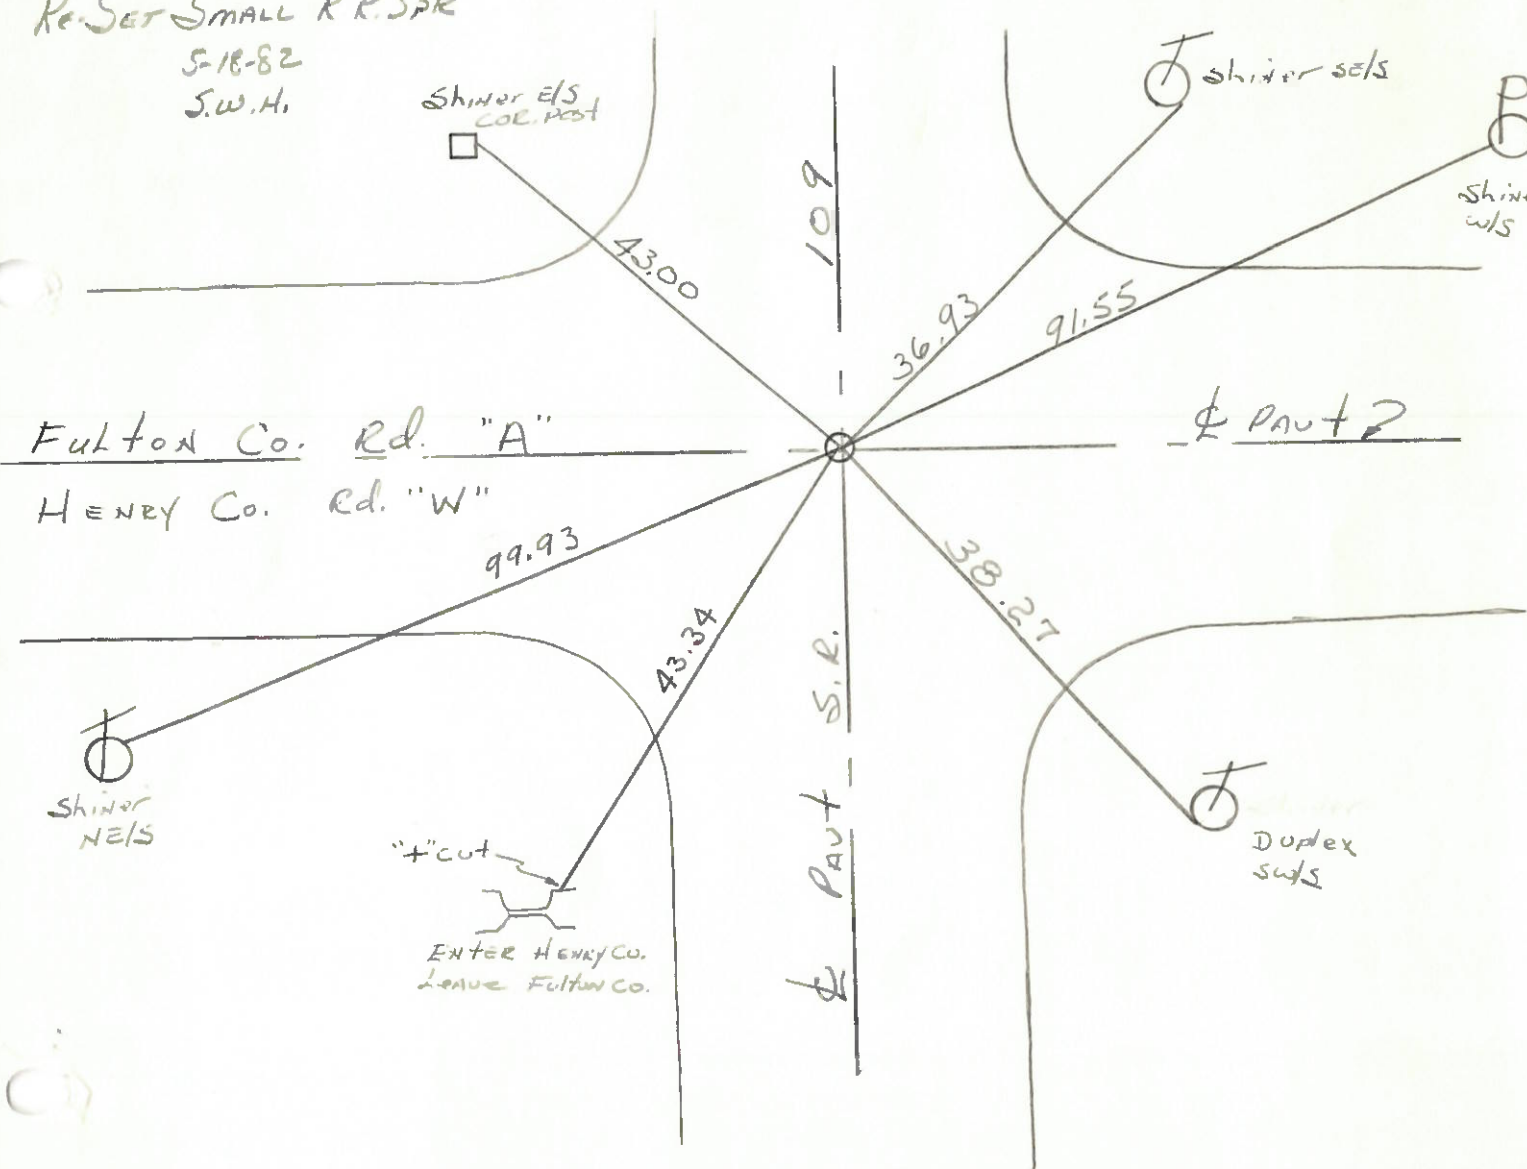 Re-Set Small R R. Spk
5-18-82
S.W.H.
Shiner E/S
COR. Post
Shiner SE/S
P
W/S
109
43.00
36.93
91.55
Fulton Co. Rd. "A"
℄ PAVt ?
HENRY Co. Rd. "W"
99.93
43.34
38.27
S. R.
℄ PAVt
Shiner
NE/S
"+" cut
Duplex
SW/S
ENtER HENRY Co.
LEAVE Fulton Co.